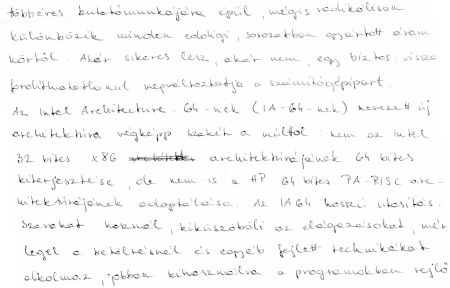 többéves kutatómunkájára épül, mégis radikálisan
különbözik minden eddigi, sorozatban gyártott áram
körtől. Akár sikeres lesz, akár nem, egy biztos: vissza
fordíthatatlanul megváltoztatja a számítógépipart.
Az Intel Architecture-64-nek (IA-64-nek) nevezett új
architektúra végképp szakít a múlttal: nem az Intel
32 bites x86 architektúrájának 64 bites
kiterjesztése, de nem is a HP 64 bites PA-RISC arc-
hitektúrájának adoptálása. Az IA64 hosszú utasítás-
szavakat használ, kiküszöböli az elágazásokat, mér
legel a betöltésnél és egyéb fejlett technikákat
alkalmaz, jobban kihasználva a programokban rejlő